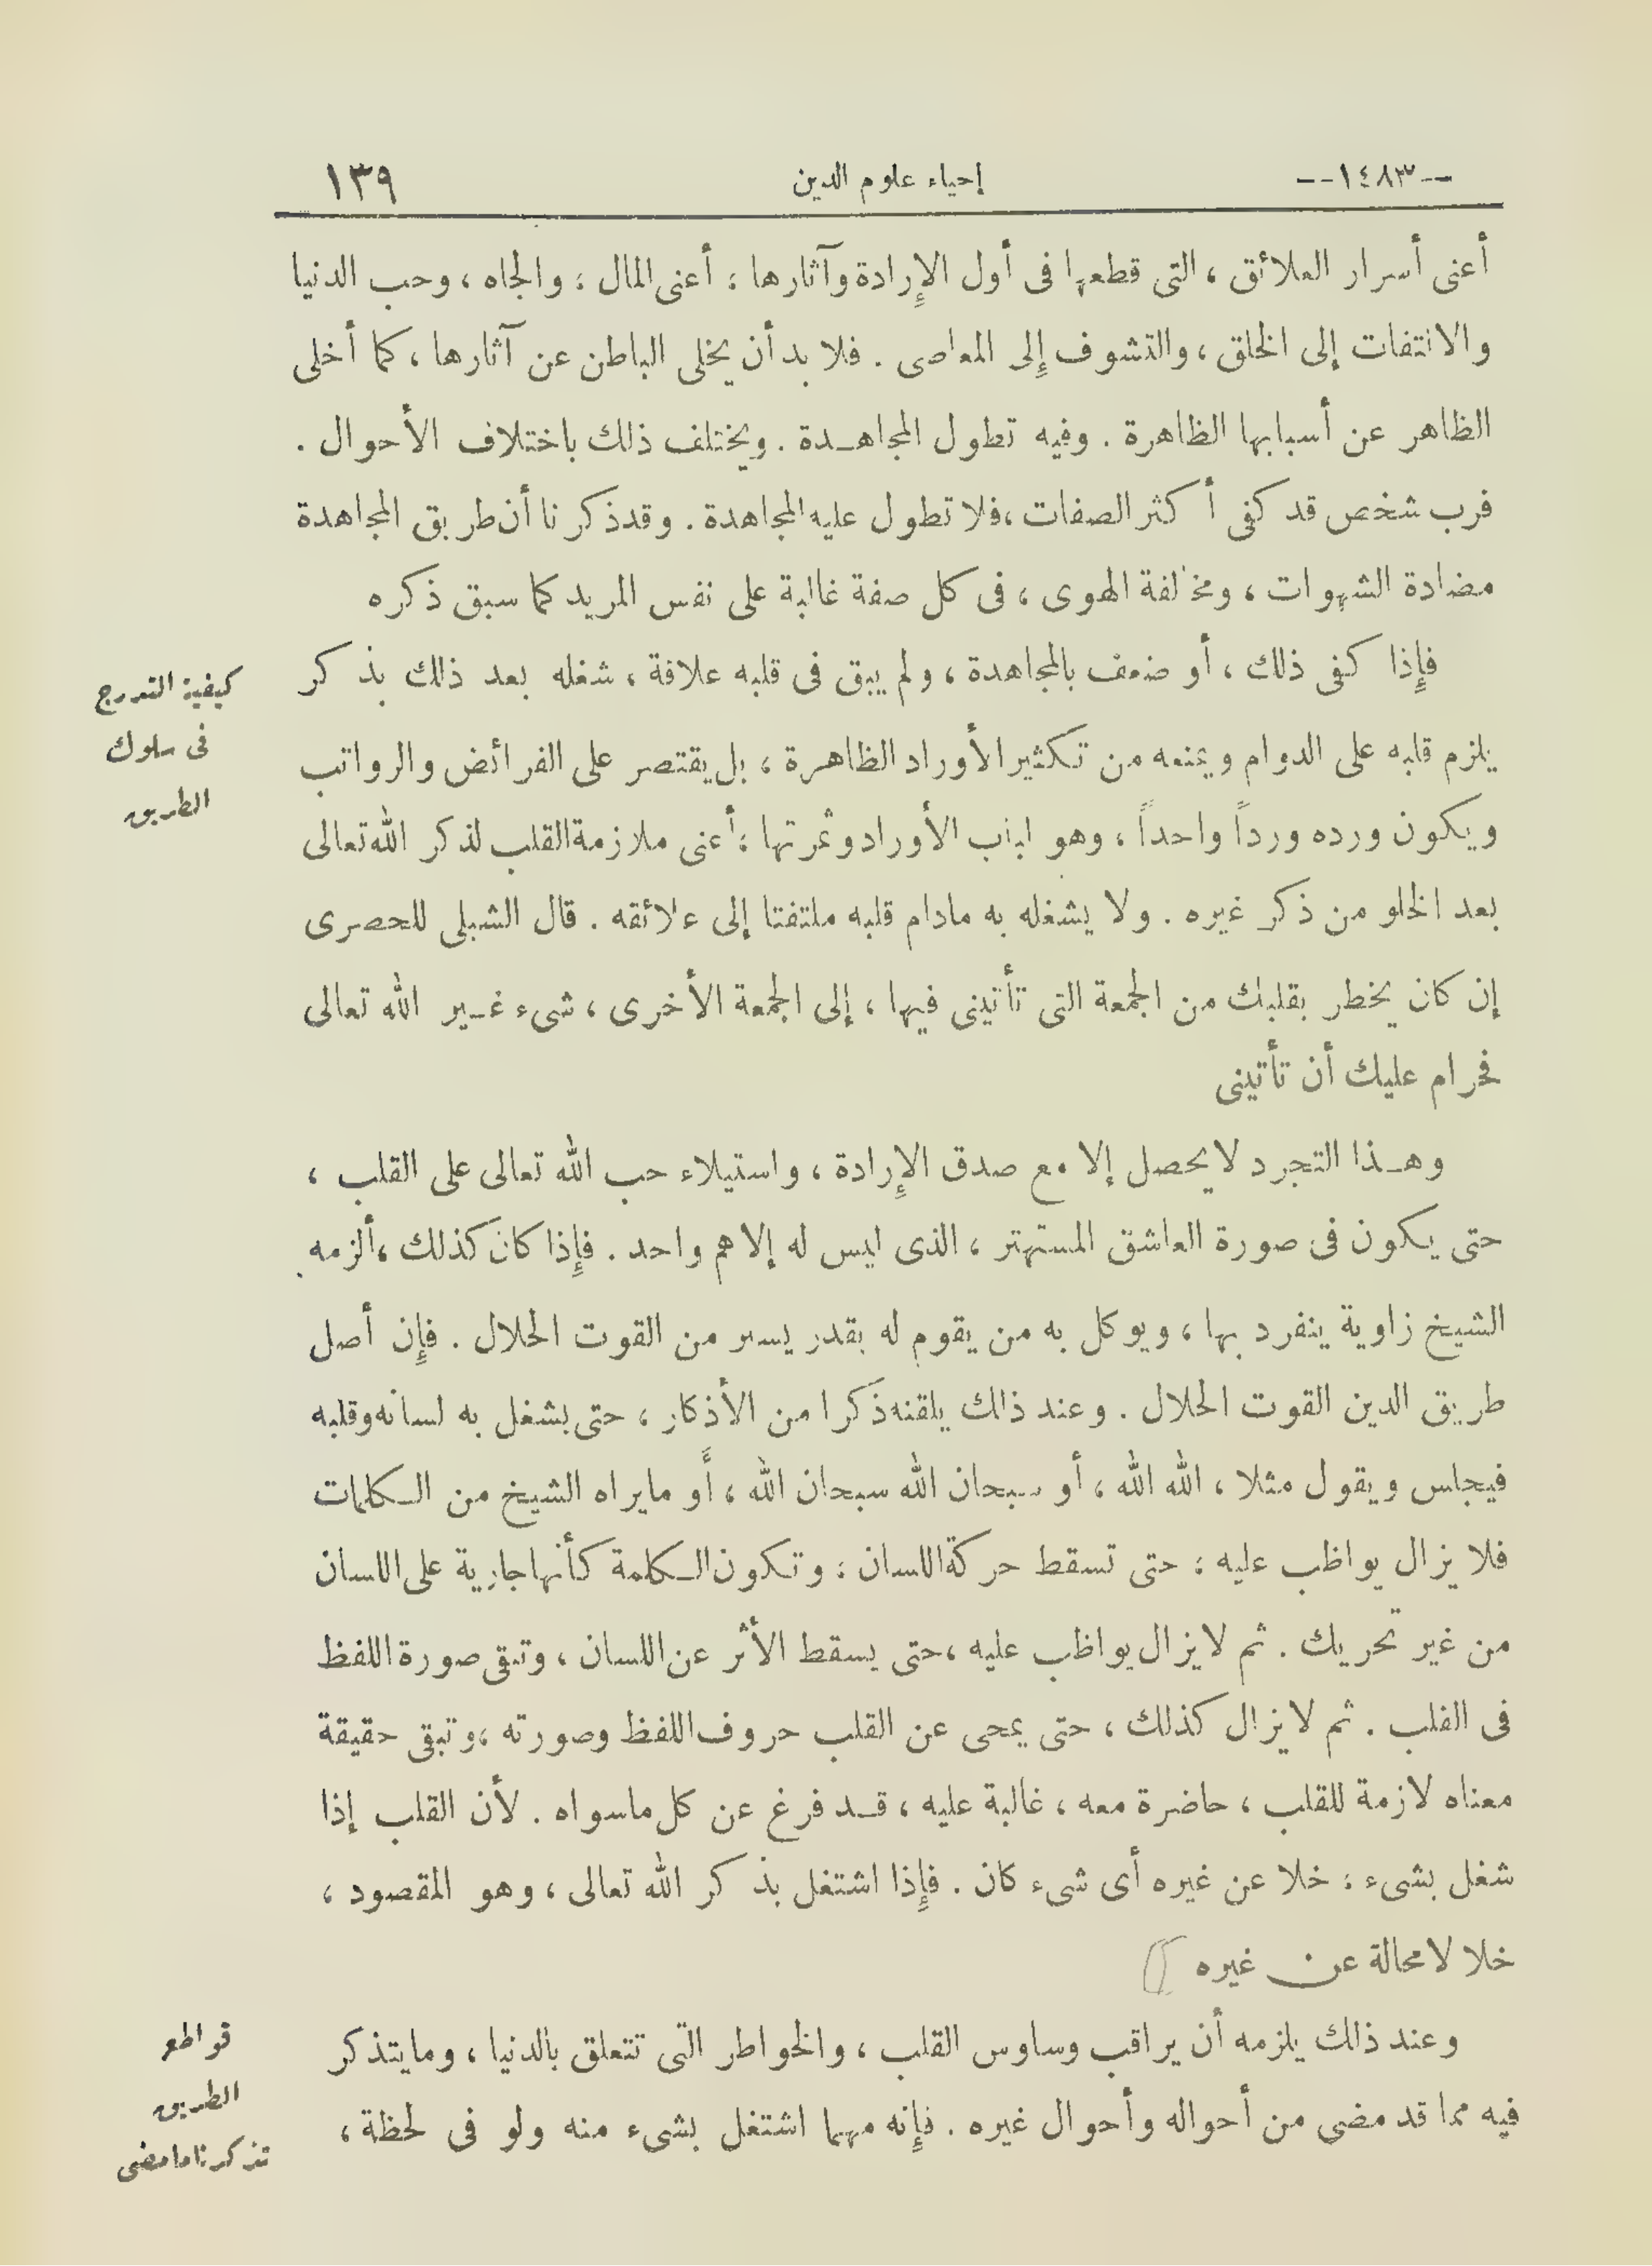 --١٤٨٣--
إحياء علوم الدين
١٣٩
أعنى أسرار العلائق ، التى قطعها فى أول الإرادة وآثارها ؛ أعنى المال ، والجاه ، وحب الدنيا
والالتفات إلى الخلق ، والتشوف إلى المعاصى . فلا بد أن يخلى الباطن عن آثارها ، كما أخلى
الظاهر عن أسبابها الظاهرة . وفيه تطول المجاهدة . ويختلف ذلك باختلاف الأحوال .
فرب شخص قد كفى أكثر الصفات ، فلا تطول عليه المجاهدة . وقد ذكرنا أن طريق المجاهدة
مضادة الشهوات ، ومخالفة الهوى ، فى كل صفة غالبة على نفس المريد كما سبق ذكره
فإذا كفى ذلك ، أو ضعف بالمجاهدة ، ولم يبق فى قلبه علاقة ، شغله بعد ذلك بذكر
كيفية التدرج
فى سلوك
الطريق
يلزم قلبه على الدوام ويمنعه من تكثير الأوراد الظاهرة ، بل يقتصر على الفرائض والرواتب
ويكون ورده ورداً واحداً ، وهو لباب الأوراد وثمرتها ؛ أعنى ملازمة القلب لذكر الله تعالى
بعد الخلو من ذكر غيره . ولا يشغله به مادام قلبه ملتفتا إلى علائقه . قال الشبلى للحصرى
إن كان يخطر بقلبك من الجمعة التى تأتينى فيها ، إلى الجمعة الأخرى ، شىء غير الله تعالى
فحرام عليك أن تأتينى
وهذا التجرد لا يحصل إلا مع صدق الإرادة ، واستيلاء حب الله تعالى على القلب ،
حتى يكون فى صورة العاشق المستهتر ، الذى ليس له إلا هم واحد . فإذا كان كذلك ، ألزمه
الشيخ زاوية ينفرد بها ، ويوكل به من يقوم له بقدر يسير من القوت الحلال . فإن أصل
طريق الدين القوت الحلال . وعند ذلك يلقنه ذكرا من الأذكار ، حتى يشغل به لسانه وقلبه
فيجلس ويقول مثلا ، الله الله ، أو سبحان الله سبحان الله ، أو ما يراه الشيخ من الكلمات
فلا يزال يواظب عليه ؛ حتى تسقط حركة اللسان ؛ وتكون الكلمة كأنها جارية على اللسان
من غير تحريك . ثم لا يزال يواظب عليه ، حتى يسقط الأثر عن اللسان ، وتبقى صورة اللفظ
فى القلب . ثم لا يزال كذلك ، حتى يمحى عن القلب حروف اللفظ وصورته ، وتبقى حقيقة
معناه لازمة للقلب ، حاضرة معه ، غالبة عليه ، قد فرغ عن كل ماسواه . لأن القلب إذا
شغل بشىء ؛ خلا عن غيره أى شىء كان . فإذا اشتغل بذكر الله تعالى ، وهو المقصود ،
خلا لا محالة عن غيره
وعند ذلك يلزمه أن يراقب وساوس القلب ، والخواطر التى تتعلق بالدنيا ، وما يتذكر
فيه مما قد مضى من أحواله وأحوال غيره . فإنه مهما اشتغل بشىء منه ولو فى لحظة ،
قواطع
الطريق
تذكرنا ما مضى